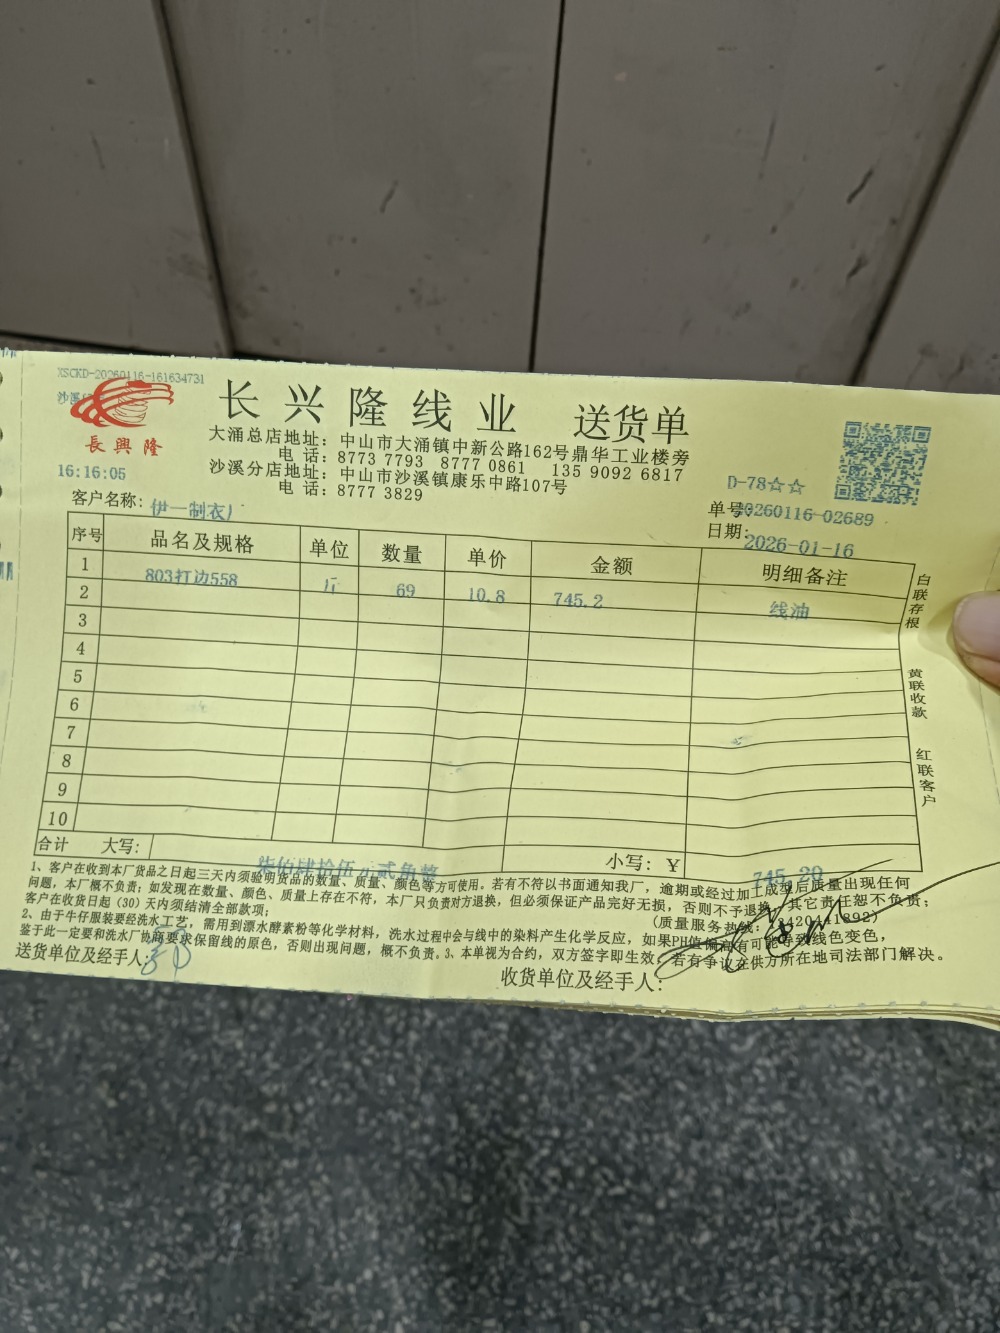 XSCKD-20260116-161634731
沙溪
長興隆
长兴隆线业 送货单
大涌总店地址：中山市大涌镇中新公路162号鼎华工业楼旁
电 话：8773 7793 8777 0861 135 9092 6817
沙溪分店地址：中山市沙溪镇康乐中路107号
电 话：8777 3829
16:16:05
D-78☆☆
客户名称：伊一制衣厂
单号：20260116-02689
日期：2026-01-16
序号 品名及规格 单位 数量 单价 金额 明细备注
1 803打边558 69 10.8 745.2 线油
2
3
4
5
6
7
8
9
10
合计 大写：柒佰肆拾伍元贰角整 小写：￥745.20
1、客户在收到本厂货品之日起三天内须验明货品的数量、质量、颜色等方可使用。若有不符以书面通知我厂，逾期或经过加工成型后质量出现任何
问题，本厂概不负责；如发现在数量、颜色、质量上存在不符，本厂只负责对方退换，但必须保证产品完好无损，否则不予退换，其它责任恕不负责；
客户在收货日起（30）天内须结清全部款项； (质量服务热线：13420441892)
2、由于牛仔服装要经洗水工艺，需用到漂水酵素粉等化学材料，洗水过程中会与线中的染料产生化学反应，如果PH值偏高有可能导致线色变色，
鉴于此一定要和洗水厂协商要求保留线的原色，否则出现问题，概不负责。3、本单视为合约，双方签字即生效，若有争议在供方所在地司法部门解决。
送货单位及经手人：
收货单位及经手人：
白联存根
黄联收款
红联客户